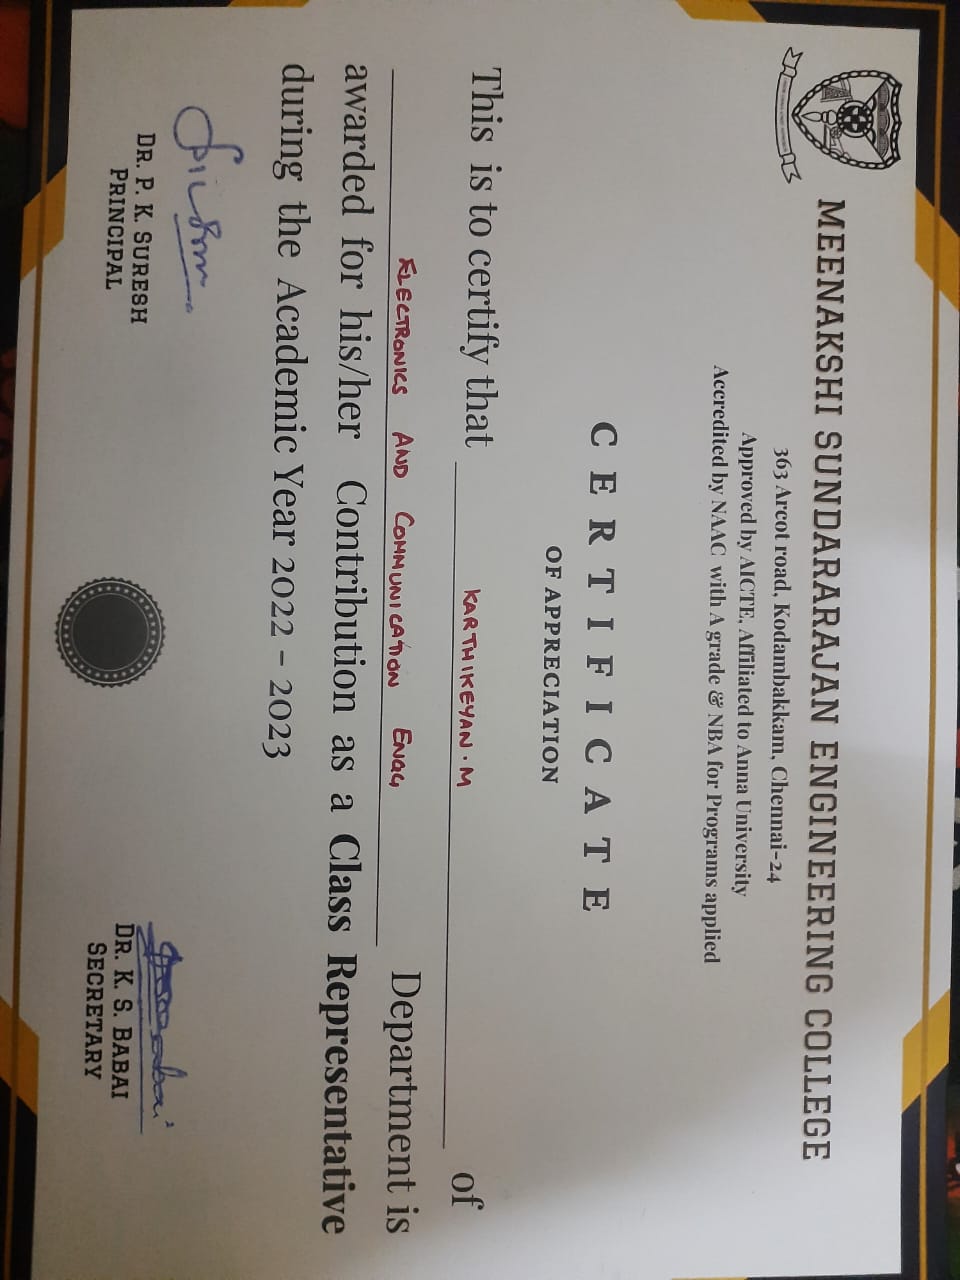 MEENAKSHI SUNDARARAJAN ENGINEERING COLLEGE
363 Arcot road, Kodambakkam, Chennai-24
Approved by AICTE, Affiliated to Anna University
Accredited by NAAC with A grade & NBA for Programs applied
CERTIFICATE
OF APPRECIATION
This is to certify that KARTHIKEYAN.M of
ELECTRONICS AND COMMUNICATION ENGG Department is
awarded for his/her Contribution as a Class Representative
during the Academic Year 2022 - 2023
DR. P. K. SURESH
PRINCIPAL
DR. K. S. BABAI
SECRETARY